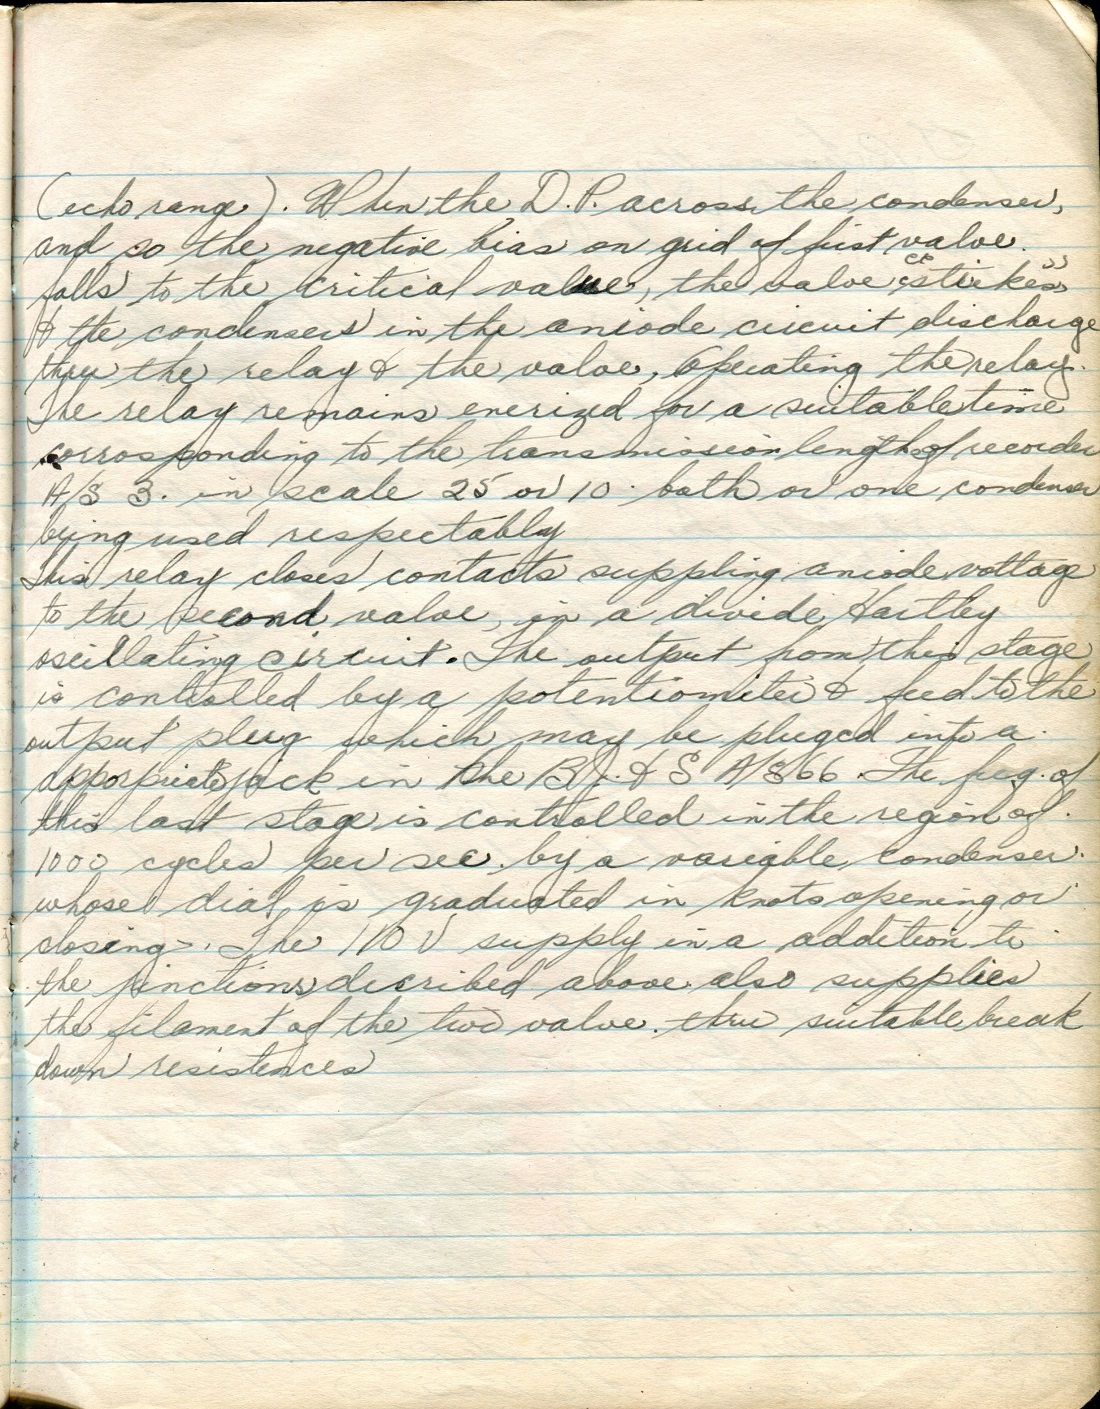 (echo range). When the D.P. across the condenser,
and so the negative bias on grid of first valve.
falls to the critical value, the valve "strikes"
& the condensers in the aniode circuit discharge
thru the relay & the valve, Operating the relay.
The relay remains enerized for a suitable time
corrosponding to the transmission length of recorder
A/S 3. in scale 25 or 10. both or one condenser
being used respectably
This relay closes contacts suppling aniode voltage
to the second valve, in a divide Hartley
oscillating circuit. The output from this stage
is controlled by a potentiomiter & feed to the
output plug which may be pluged into a
apporpriate jack in the B.J. & S A/S 66. The feq. of
this last stage is controlled in the region of.
1000 cycles per sec. by a variable condenser.
whose dial is graduated in knots opening or
closing. The 110 V supply in a addition to
the finctions discribed above also supplies
the filament of the two valve. thru suitable break
down resistences